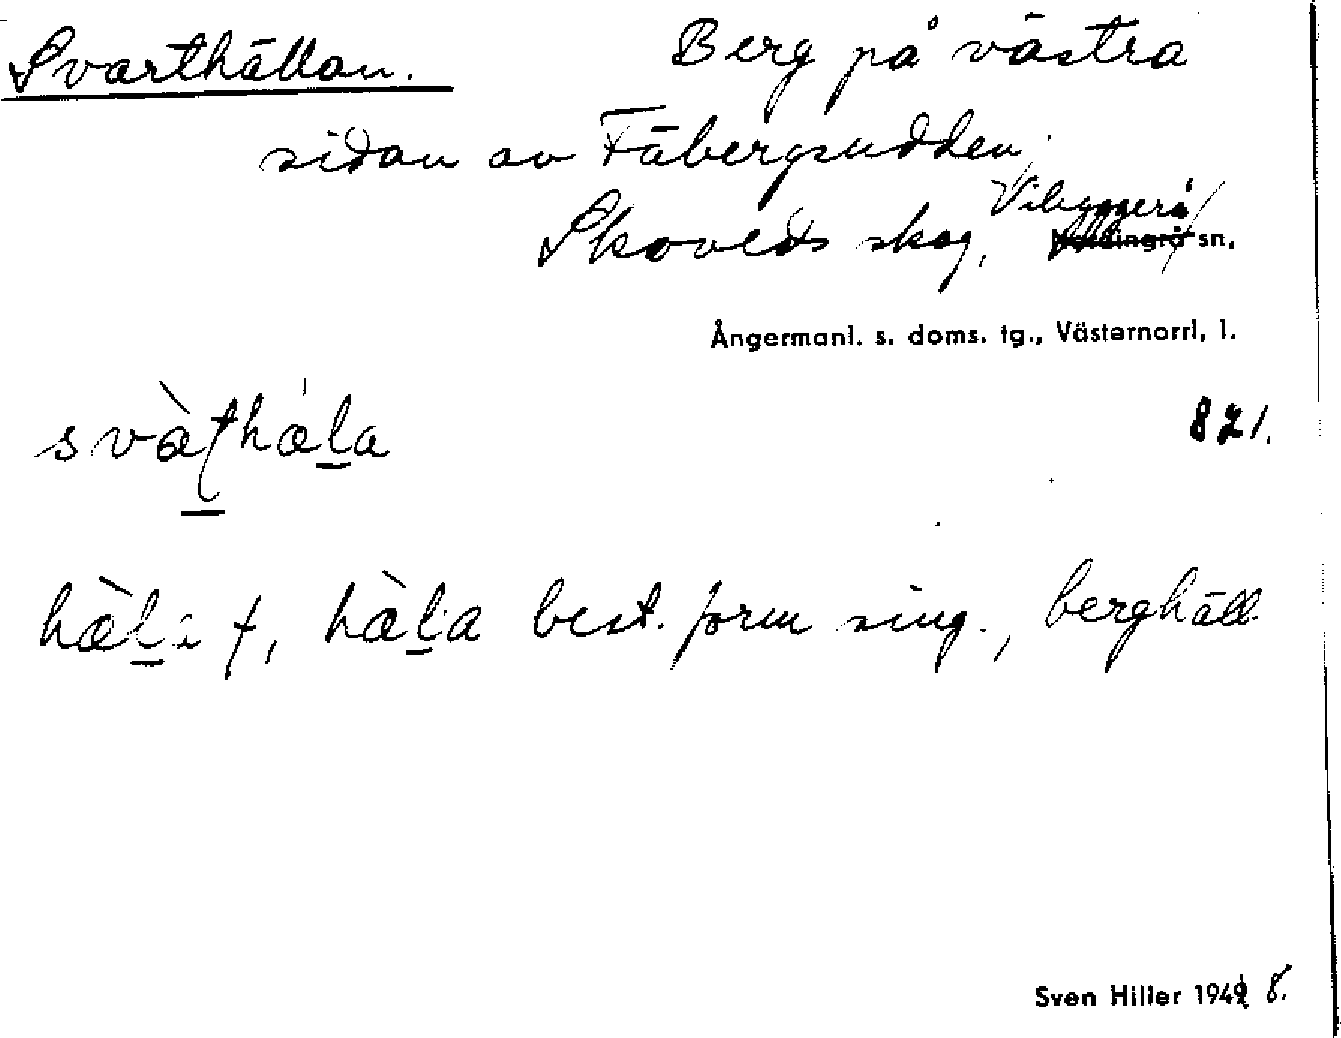 Svarthällan. Berg på västra
sidan av Fäbergsudden,
Skoveds skog, Vibyggerå
Nordingrå sn.
Ångermanl. s. doms. tg., Västernorrl. l.
svàt̠hál̠a 821.
hæ̀l̠a f, hæ̀l̠a best. form sing., berghäll.
Sven Hiller 1948.